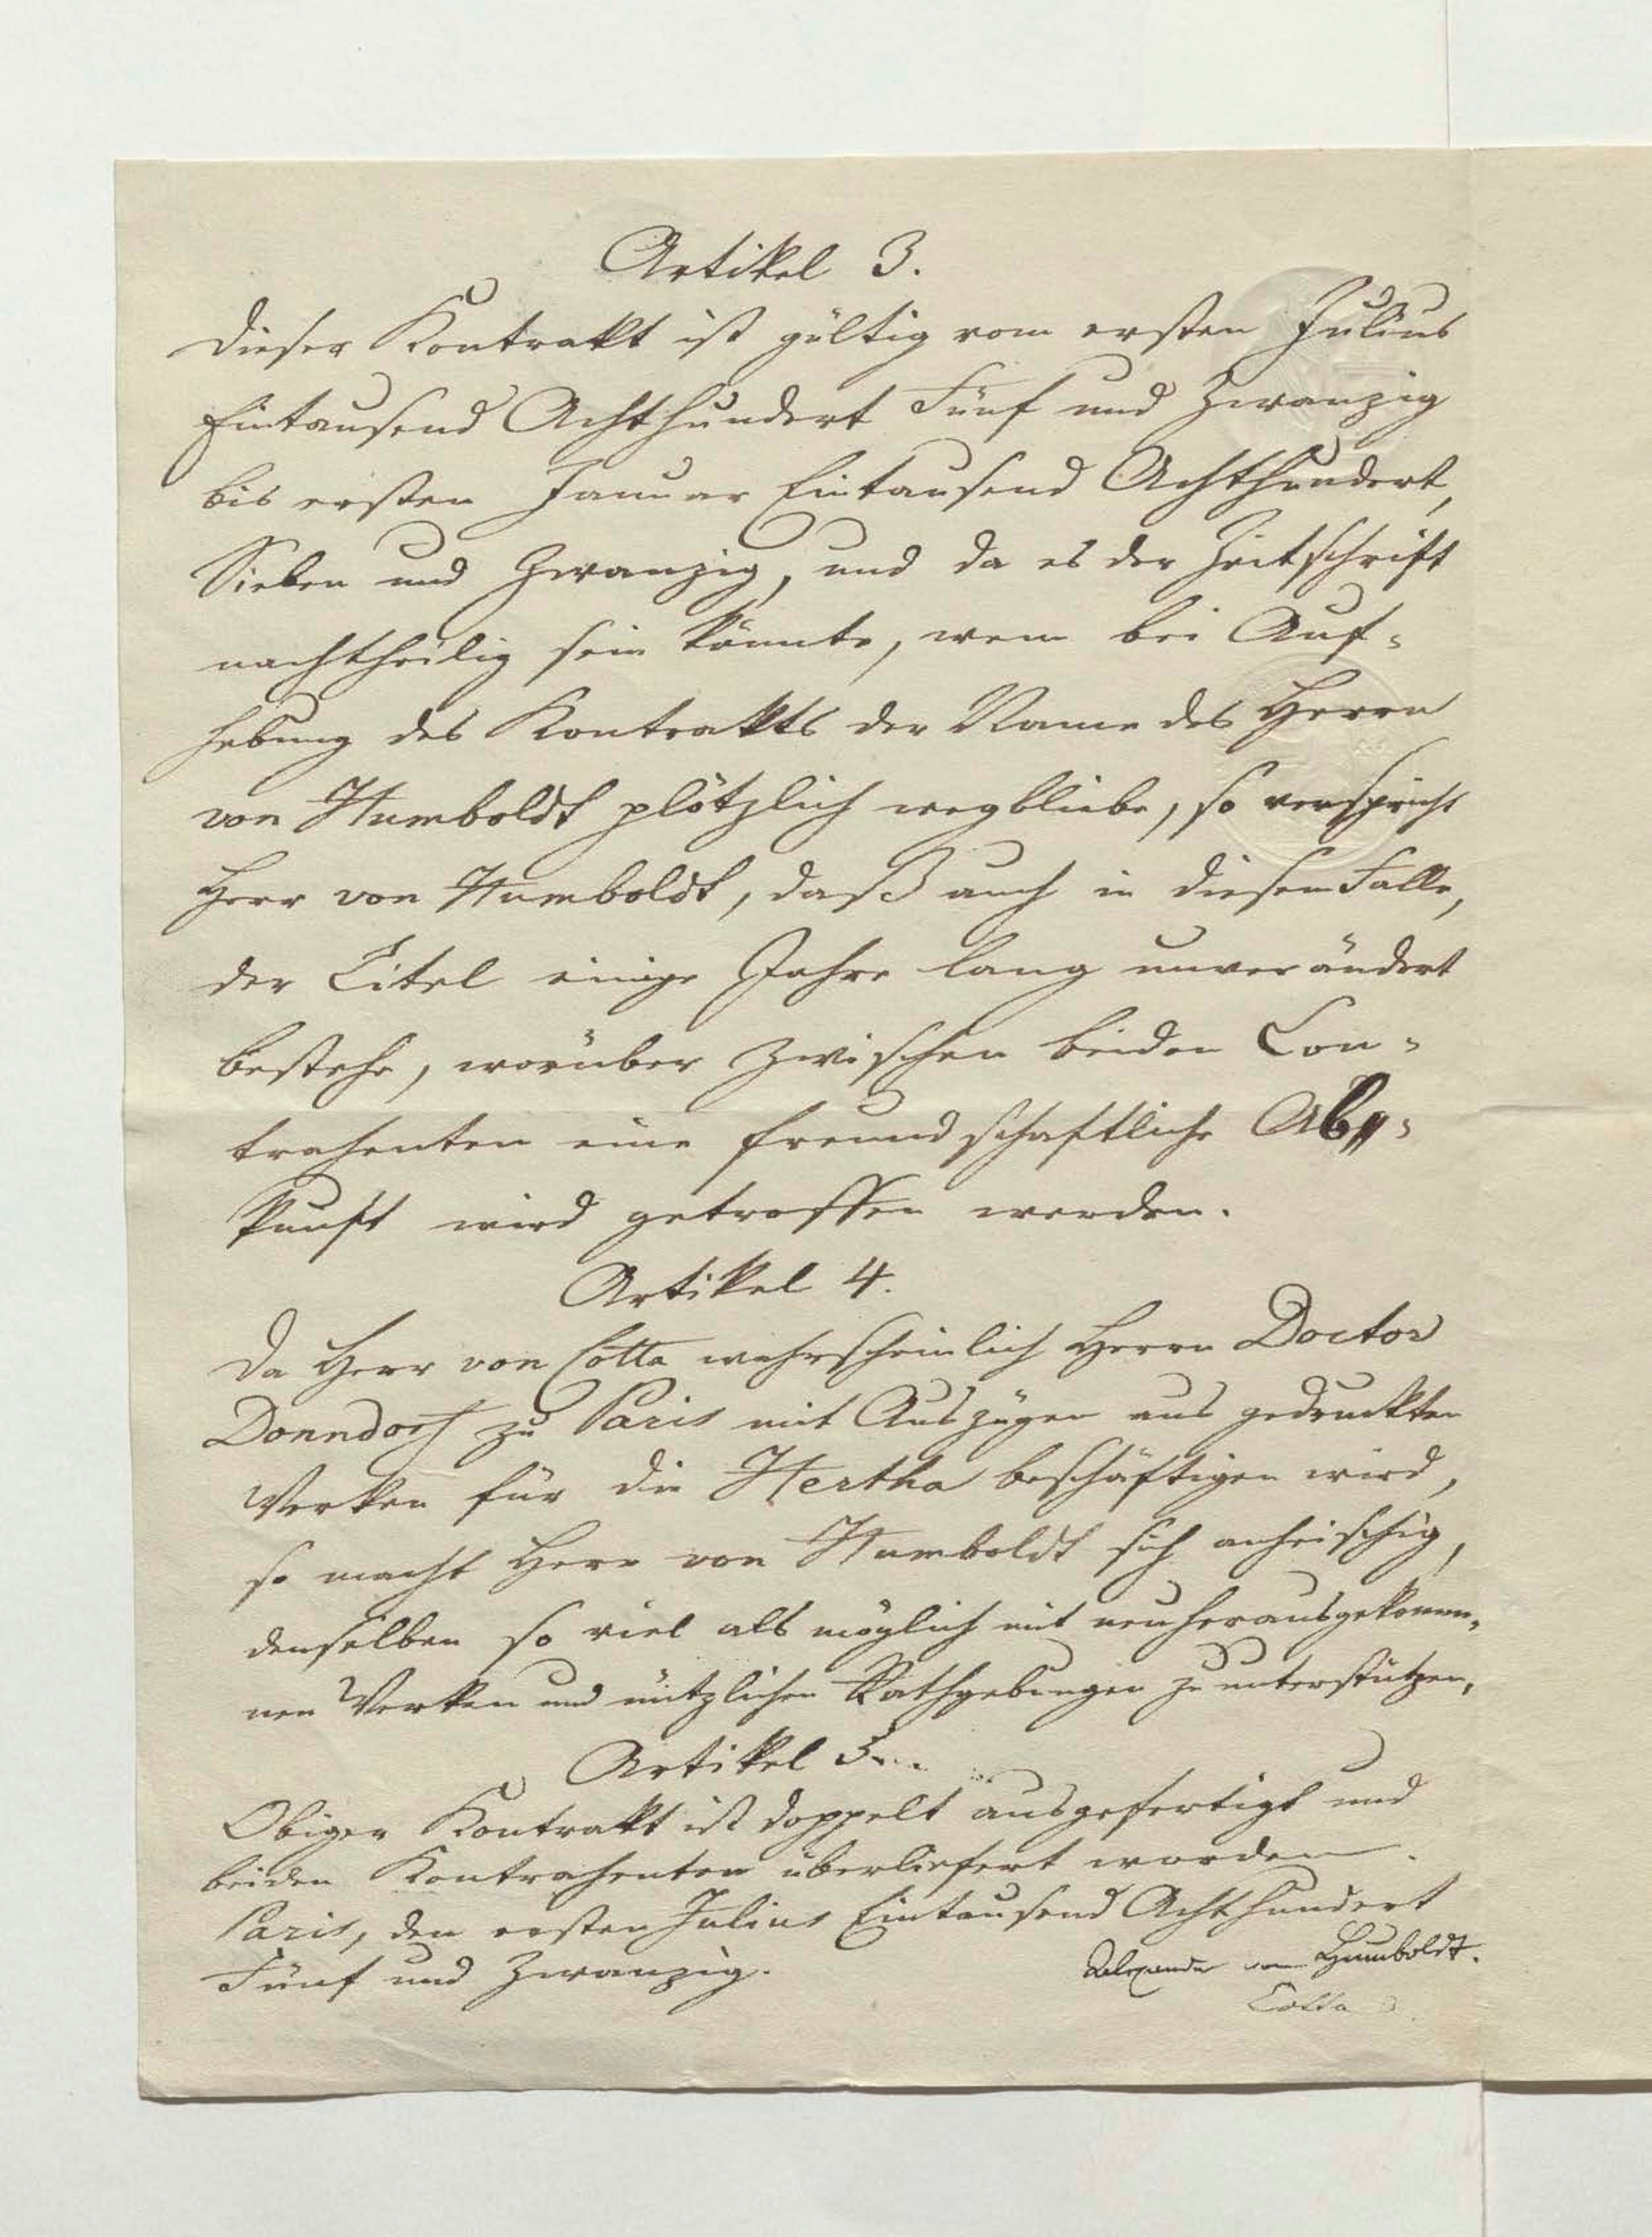 Artikel 3.
Dieser Kontrakt ist gültig vom ersten Julius
Eintausend Achthundert Fünf und Zwanzig
bis ersten Januar Eintausend Achthundert,
Sieben und Zwanzig, und da es der Zeitschrift
nachtheilig sein könnte, wenn bei Auf-
hebung des Kontrakts der Name des Herrn
von Humboldt plötzlich wegbliebe, so verspricht
Herr von Humboldt, daß auch in diesem Falle,
der Titel einige Jahre lang unverändert
bestehe, worüber zwischen beiden Con-
trahenten eine freundschaftliche Ab-
kunft wird getroffen werden.
Artikel 4.
Da Herr von Cotta wahrscheinlich Herrn Doctor
Donndorf zu Paris mit Auszügen aus gedruckten
Werken für die Hertha beschäftigen wird,
so macht Herr von Humboldt sich anheischig,
denselben so viel als möglich mit neuherausgekomme-
nen Werken und nützlichen Rathgebungen zu unterstützen,
Artikel 5.
Obiger Kontrakt ist doppelt ausgefertigt und
beiden Kontrahenten überliefert worden.
Paris, den ersten Julius Eintausend Achthundert
Fünf und Zwanzig.
Alexander von Humboldt.
Cotta